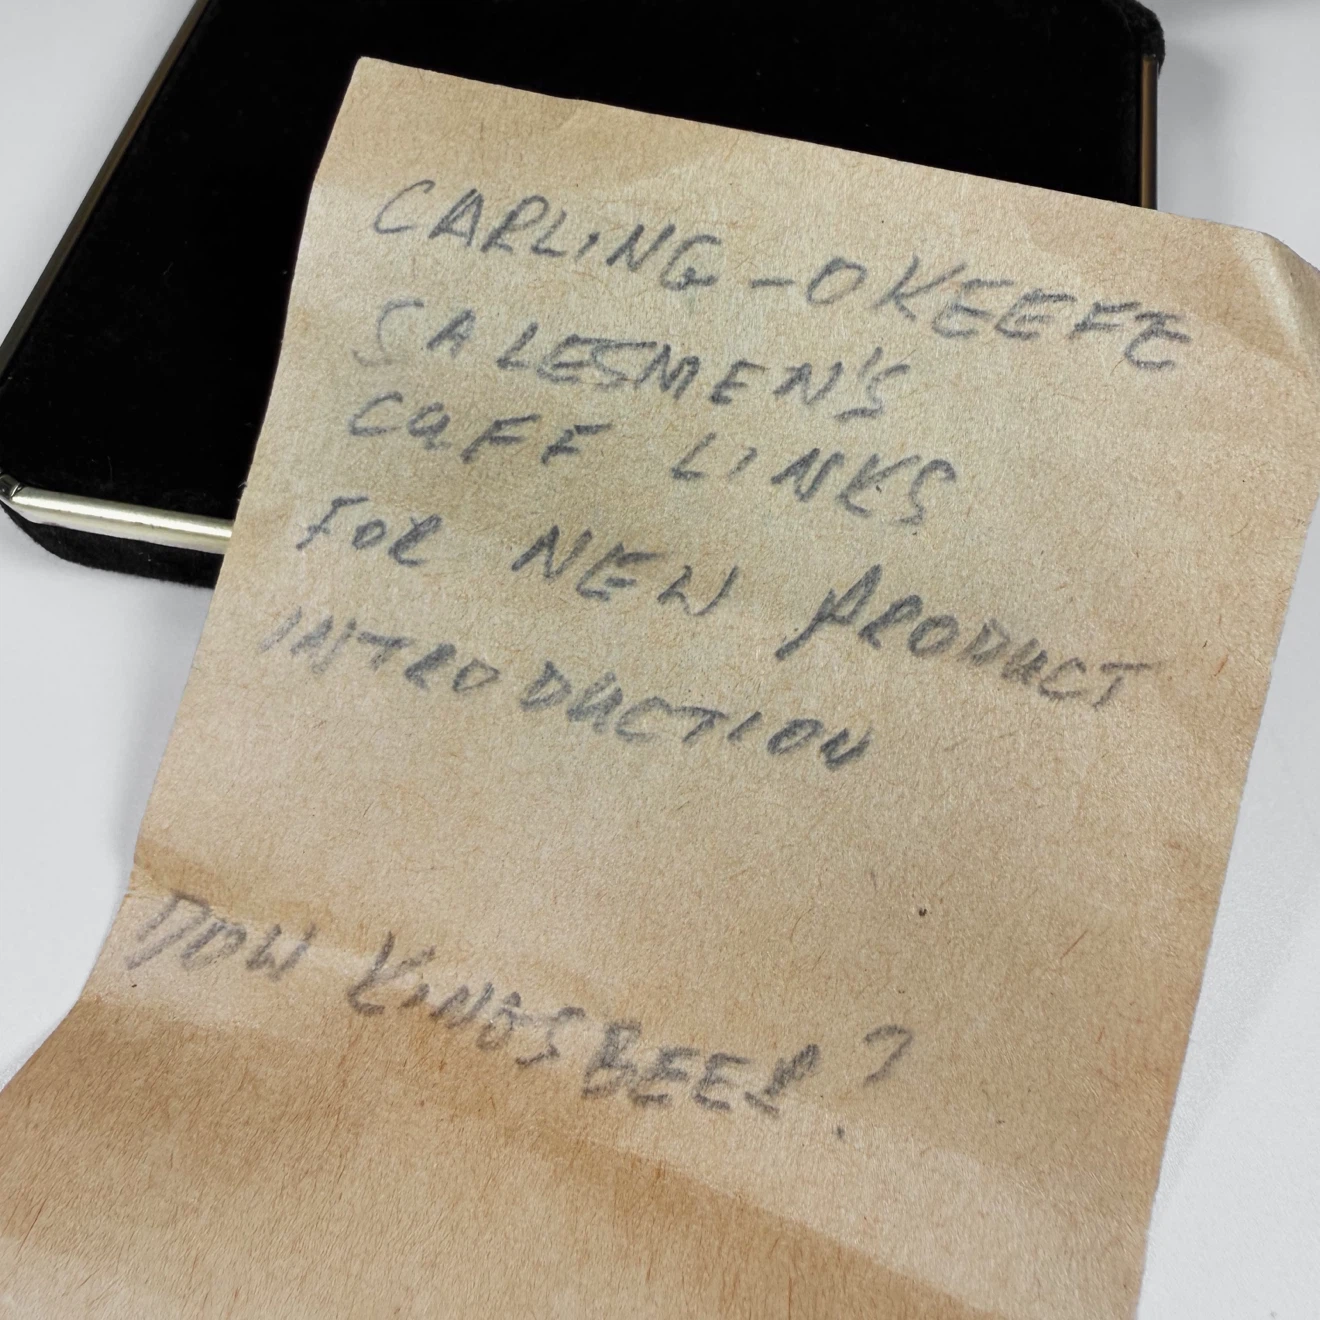 CARLING-OKEEFE
SALESMEN'S
CUFF LINKS
FOR NEW PRODUCT
INTRODUCTION
DOW KINGSBEER?